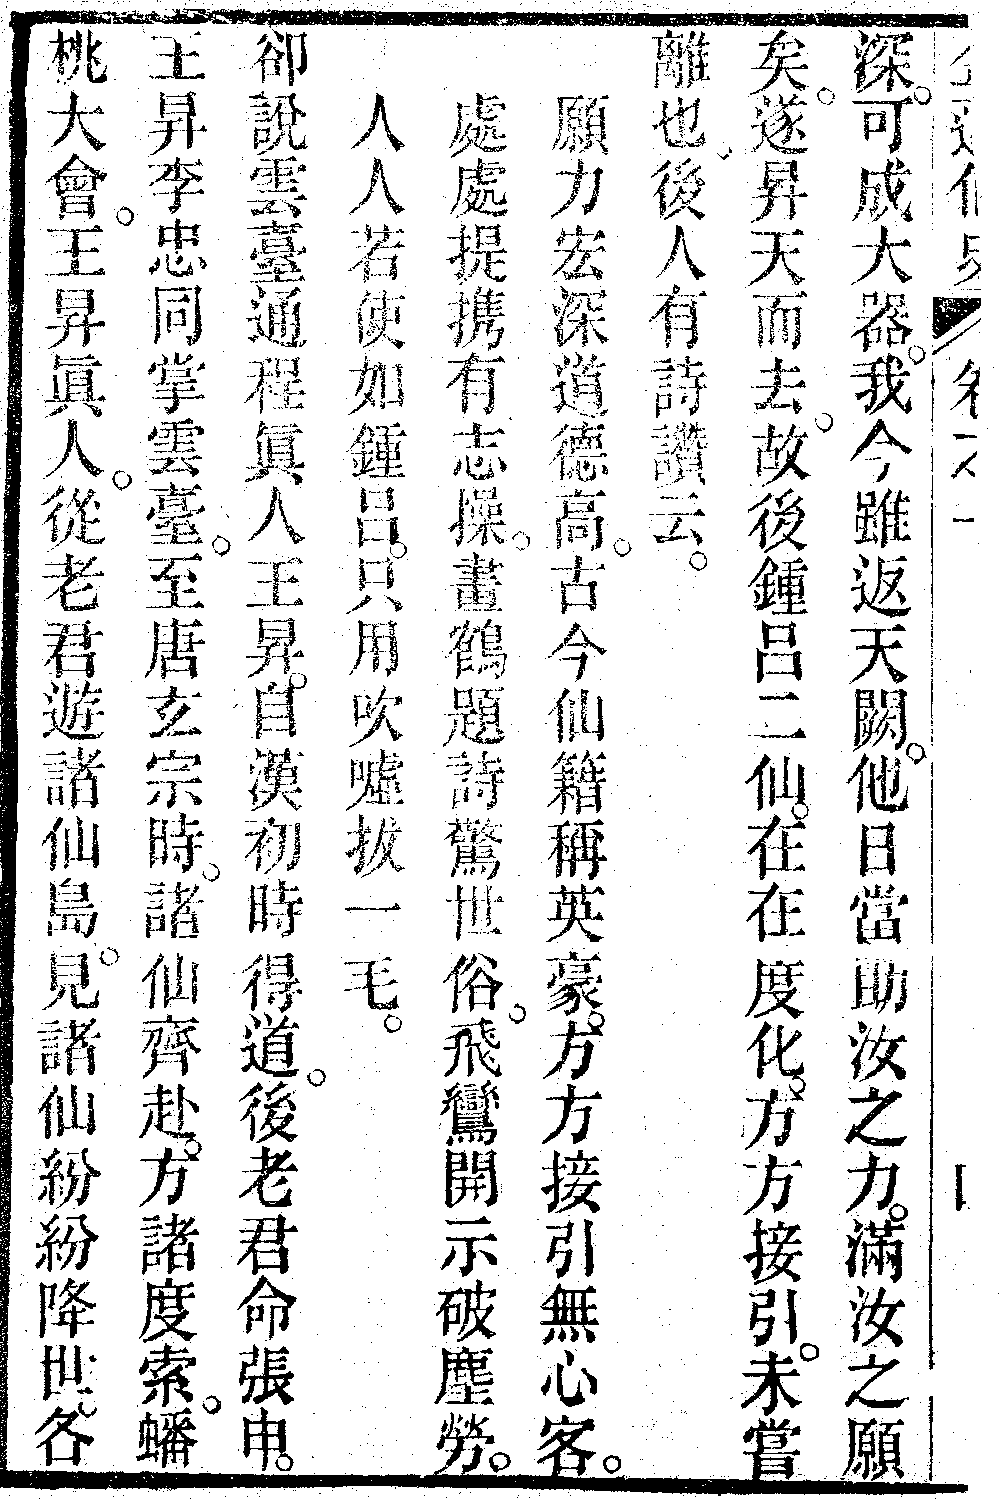 深。可成大器。我今雖返天闕。他日當助汝之力。滿汝之願
矣。遂昇天而去。故後鍾呂二仙。在在度化。方方接引。未嘗
離也。後人有詩讚云。
願力宏深道德高。古今仙籍稱英豪。方方接引無心客。
處處提携有志操。畫鶴題詩驚世俗。飛鸞開示破塵勞。
人人若使如鍾呂。只用吹噓拔一毛。
卻說雲臺通程眞人王昇。自漢初時得道。後老君命張申。
王昇李忠同掌雲臺。至唐玄宗時。諸仙齊赴。方諸度索。蟠
桃大會。王昇眞人。從老君遊諸仙島。見諸仙紛紛降世。各